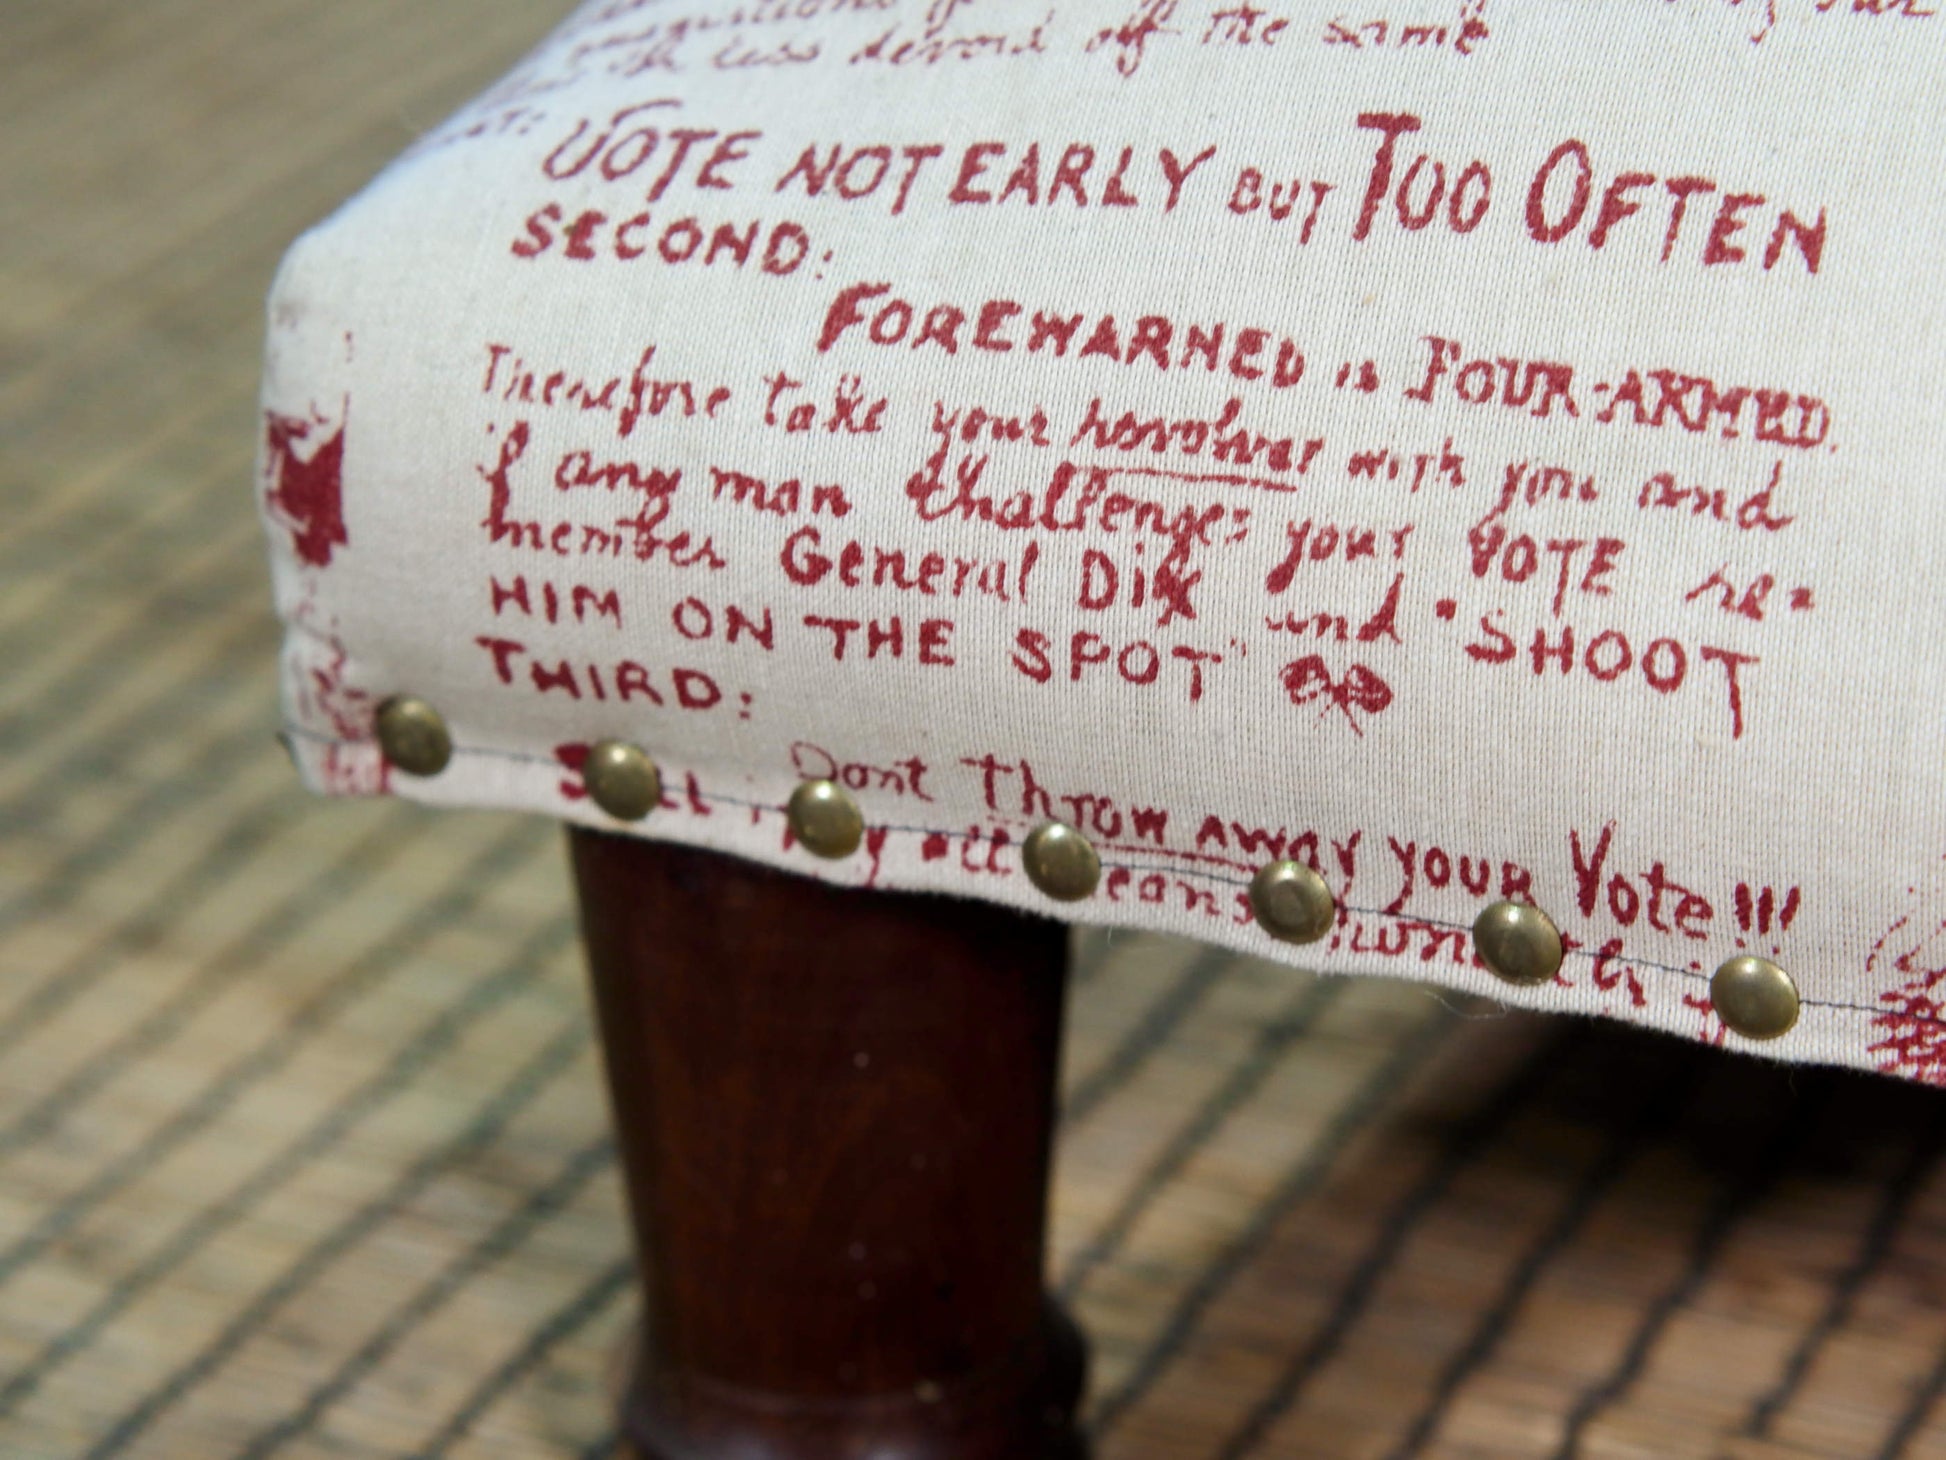 the less devoid off the same
VOTE NOT EARLY BUT TOO OFTEN
SECOND:
FOREWARNED is FOUR-ARMED.
Therefore take your revolver with you and
if any man challenges your VOTE re-
member General Dix and "SHOOT
HIM ON THE SPOT"
THIRD:
Dont Throw away your Vote!!!